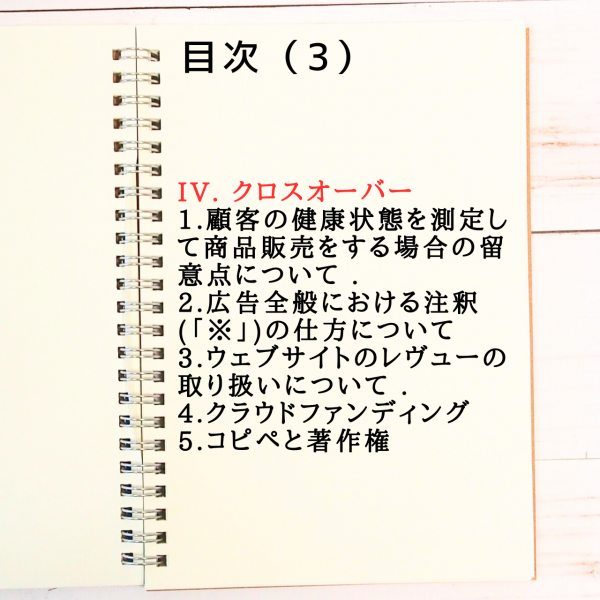 目次（３）
IV. クロスオーバー
1.顧客の健康状態を測定し
て商品販売をする場合の留
意点について .
2.広告全般における注釈
(｢※｣)の仕方について
3.ウェブサイトのレヴューの
取り扱いについて .
4.クラウドファンディング
5.コピペと著作権